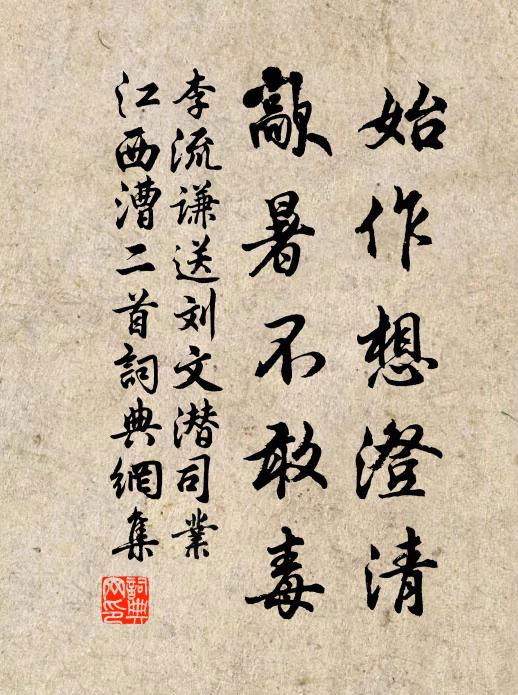 始作想澄清
歊暑不敢毒
李流谦送刘文潜司業
江西漕二首詞典網集
詞典网印